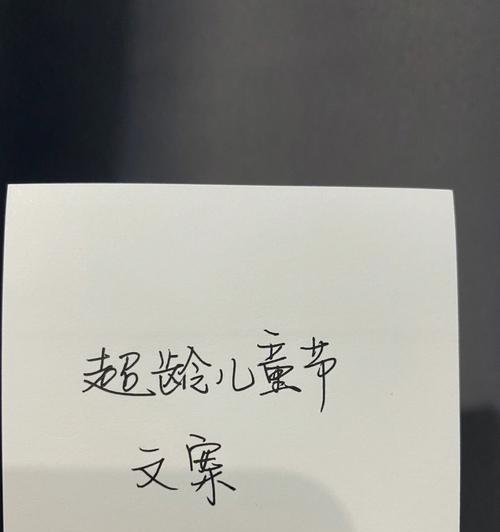 超龄儿童节
文案